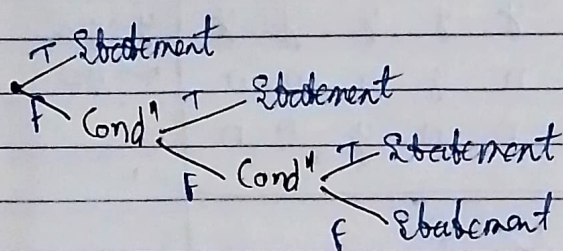 T Statement
F Condⁿ T Statement
F Condⁿ T Statement
F Statement